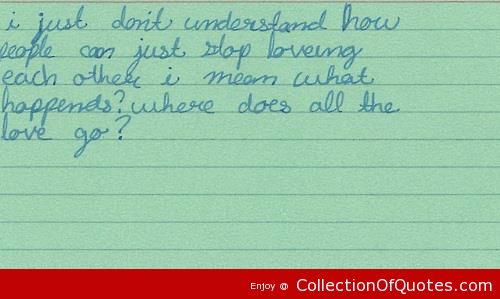 i just don't understand how
people can just stop loveing
each other, i mean what
happends? where does all the
love go?
Enjoy @ CollectionOfQuotes.com